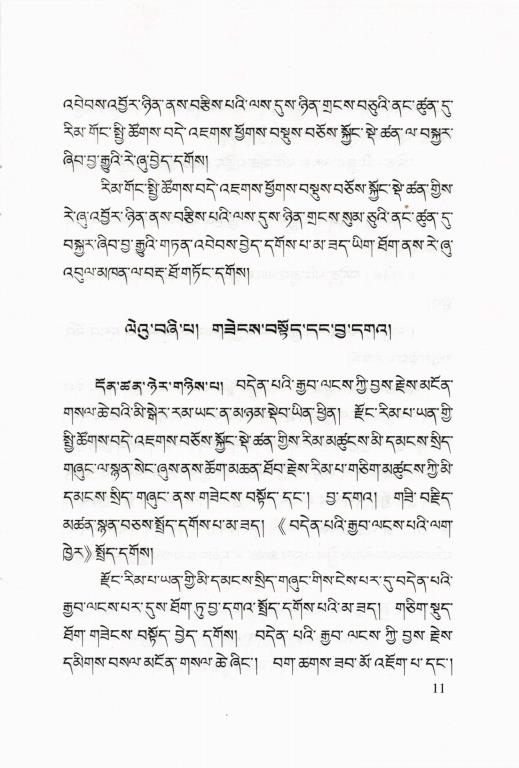 འབེབས་འབྱོར་ཉིན་ནས་བརྩིས་པའི་ལས་དུས་ཉིན་གྲངས་བཅུའི་ནང་ཚུན་དུ་
རིམ་གོང་སྤྱི་ཚོགས་བདེ་འཇགས་ཕྱོགས་བསྡུས་བཅོས་སྐྱོང་སྡེ་ཚན་ལ་བསྐྱར་
ཞིབ་བྱ་རྒྱུའི་རེ་ཞུ་བྱེད་དགོས།
རིམ་གོང་སྤྱི་ཚོགས་བདེ་འཇགས་ཕྱོགས་བསྡུས་བཅོས་སྐྱོང་སྡེ་ཚན་གྱིས་
རེ་ཞུ་འབྱོར་ཉིན་ནས་བརྩིས་པའི་ལས་དུས་ཉིན་གྲངས་སུམ་ཅུའི་ནང་ཚུན་དུ་
བསྐྱར་ཞིབ་བྱ་རྒྱུའི་གཏན་འབེབས་བྱེད་དགོས་པ་མ་ཟད་ཡིག་ཐོག་ནས་རེ་ཞུ་
འབུལ་མཁན་ལ་བརྡ་ཐོ་གཏོང་དགོས།
ལེའུ་བཞི་པ། གཟེངས་བསྟོད་དང་བྱ་དགའ།
དོན་ཚན་ཉེར་གཉིས་པ། བདེན་པའི་རྒྱབ་ལངས་ཀྱི་བྱས་རྗེས་མངོན་
གསལ་ཆེ་བའི་མི་སྒེར་རམ་ཡང་ན་མཉམ་སྡེབ་ཡིན་ཕྱིན། རྫོང་རིམ་པ་ཡན་གྱི་
སྤྱི་ཚོགས་བདེ་འཇགས་བཅོས་སྐྱོང་སྡེ་ཚན་གྱིས་རིམ་མཚུངས་མི་དམངས་སྲིད་
གཞུང་ལ་སྙན་སེང་ཞུས་ནས་ཆོག་མཆན་ཐོབ་རྗེས་རིམ་པ་གཅིག་མཚུངས་ཀྱི་མི་
དམངས་སྲིད་གཞུང་ནས་གཟེངས་བསྟོད་དང་། བྱ་དགའ། གཟི་བརྗིད་
མཚན་སྙན་བཅས་སྤྲོད་དགོས་པ་མ་ཟད། 《བདེན་པའི་རྒྱབ་ལངས་པའི་ལག་
ཁྱེར》སྤྲོད་དགོས།
རྫོང་རིམ་པ་ཡན་གྱི་མི་དམངས་སྲིད་གཞུང་གིས་ངེས་པར་དུ་བདེན་པའི་
རྒྱབ་ལངས་པར་དུས་ཐོག་ཏུ་བྱ་དགའ་སྤྲོད་དགོས་པའི་མ་ཟད། གཅིག་སྡུད་
ཐོག་གཟེངས་བསྟོད་བྱེད་དགོས། བདེན་པའི་རྒྱབ་ལངས་ཀྱི་བྱས་རྗེས་
དམིགས་བསལ་མངོན་གསལ་ཆེ་ཞིང་། བག་ཆགས་ཟབ་མོ་འཇོག་པ་དང་།
11